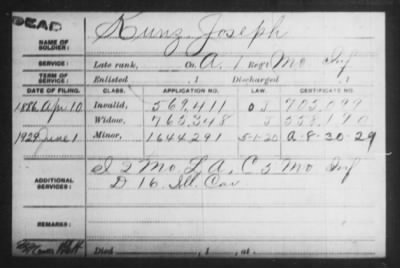 DEAD
NAME OF SOLDIER: Kunz Joseph
SERVICE: Late rank, Co. A. 1 Reg't Mo Inf
TERM OF SERVICE: Enlisted , 1 Discharged , 1
DATE OF FILING. CLASS. APPLICATION NO. LAW. CERTIFICATE NO.
1886 Apr. 10 Invalid, 569,411
Widow, 763,348
1929 June 1 Minor, 1644291 5-1-20 A-8-30-29
ADDITIONAL SERVICES: I 2 Mo L A, C 5 Mo Inf
D 16 Ill. Cav
REMARKS:
Died , 1 , at